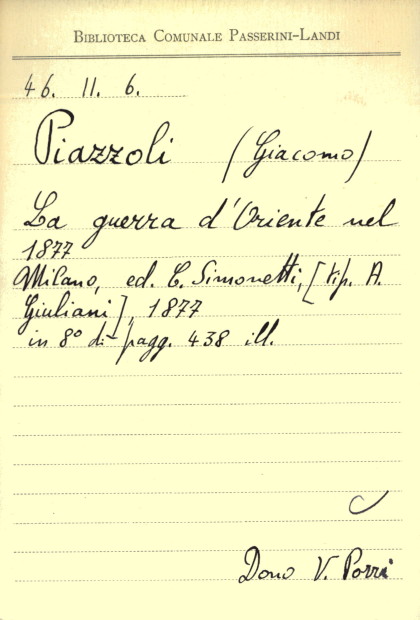 BIBLIOTECA COMUNALE PASSERINI-LANDI
46. II. 6.
Piazzoli (Giacomo)
La guerra d'Oriente nel
1877
Milano, ed. C. Simonetti, [tip. A.
Giuliani], 1877
in 8° di pagg. 438 ill.
Dono V. Porri